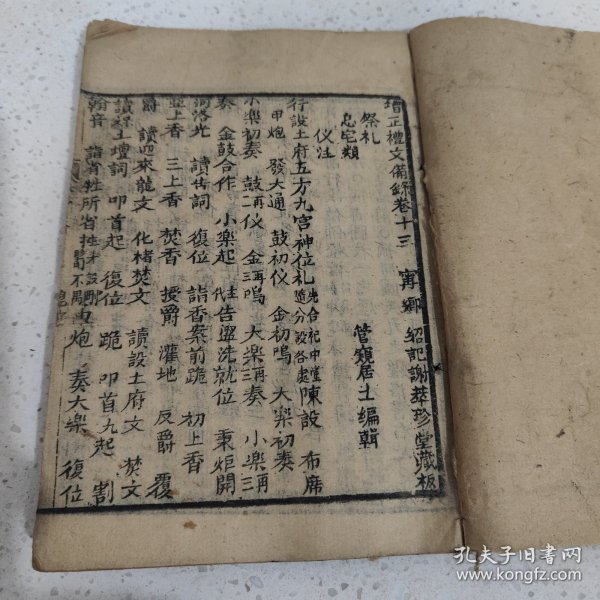 增正禮文備錄卷十三 甯鄉 紹記謝萃珍堂藏板
管窺居士編輯
祭礼
忌宅類
仪注
行設土府五方九宮神位礼 先合祀中堂 隨分設各處 陳設 布席
甲炮 發大通 鼓初仪 金初鳴 大樂初奏
小樂初奏 鼓再仪 金再鳴 大樂再奏 小樂再
奏 金鼓合作 小樂起 主告盥洗就位 秉炬開
河洛光 讀告詞 復位 詣香案前跪 初上香
亞上香 三上香 焚香 授爵 灌地 反爵 覆
爵 讀迎來龍文 化楮焚文 讀設土府文 焚文
讀 土壇詞 叩首起 復位 跪 叩首九起 割
翰音 詣省牲所省牲 炮 奏大樂 復位
孔夫子旧书网
www.kongfz.com